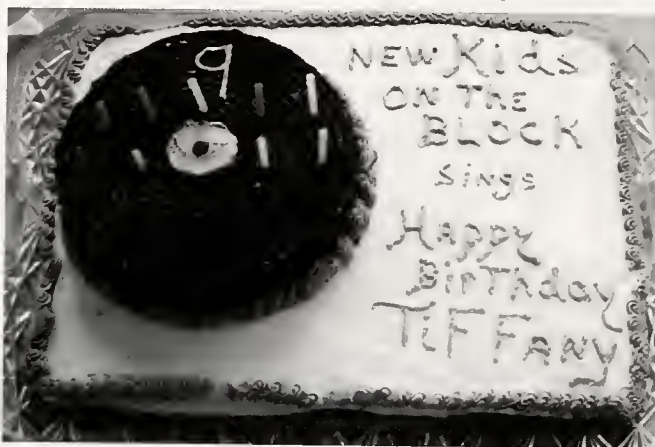 9
NEW Kids
ON THE
BLOCK
sings
Happy
BirThday
TiFFany